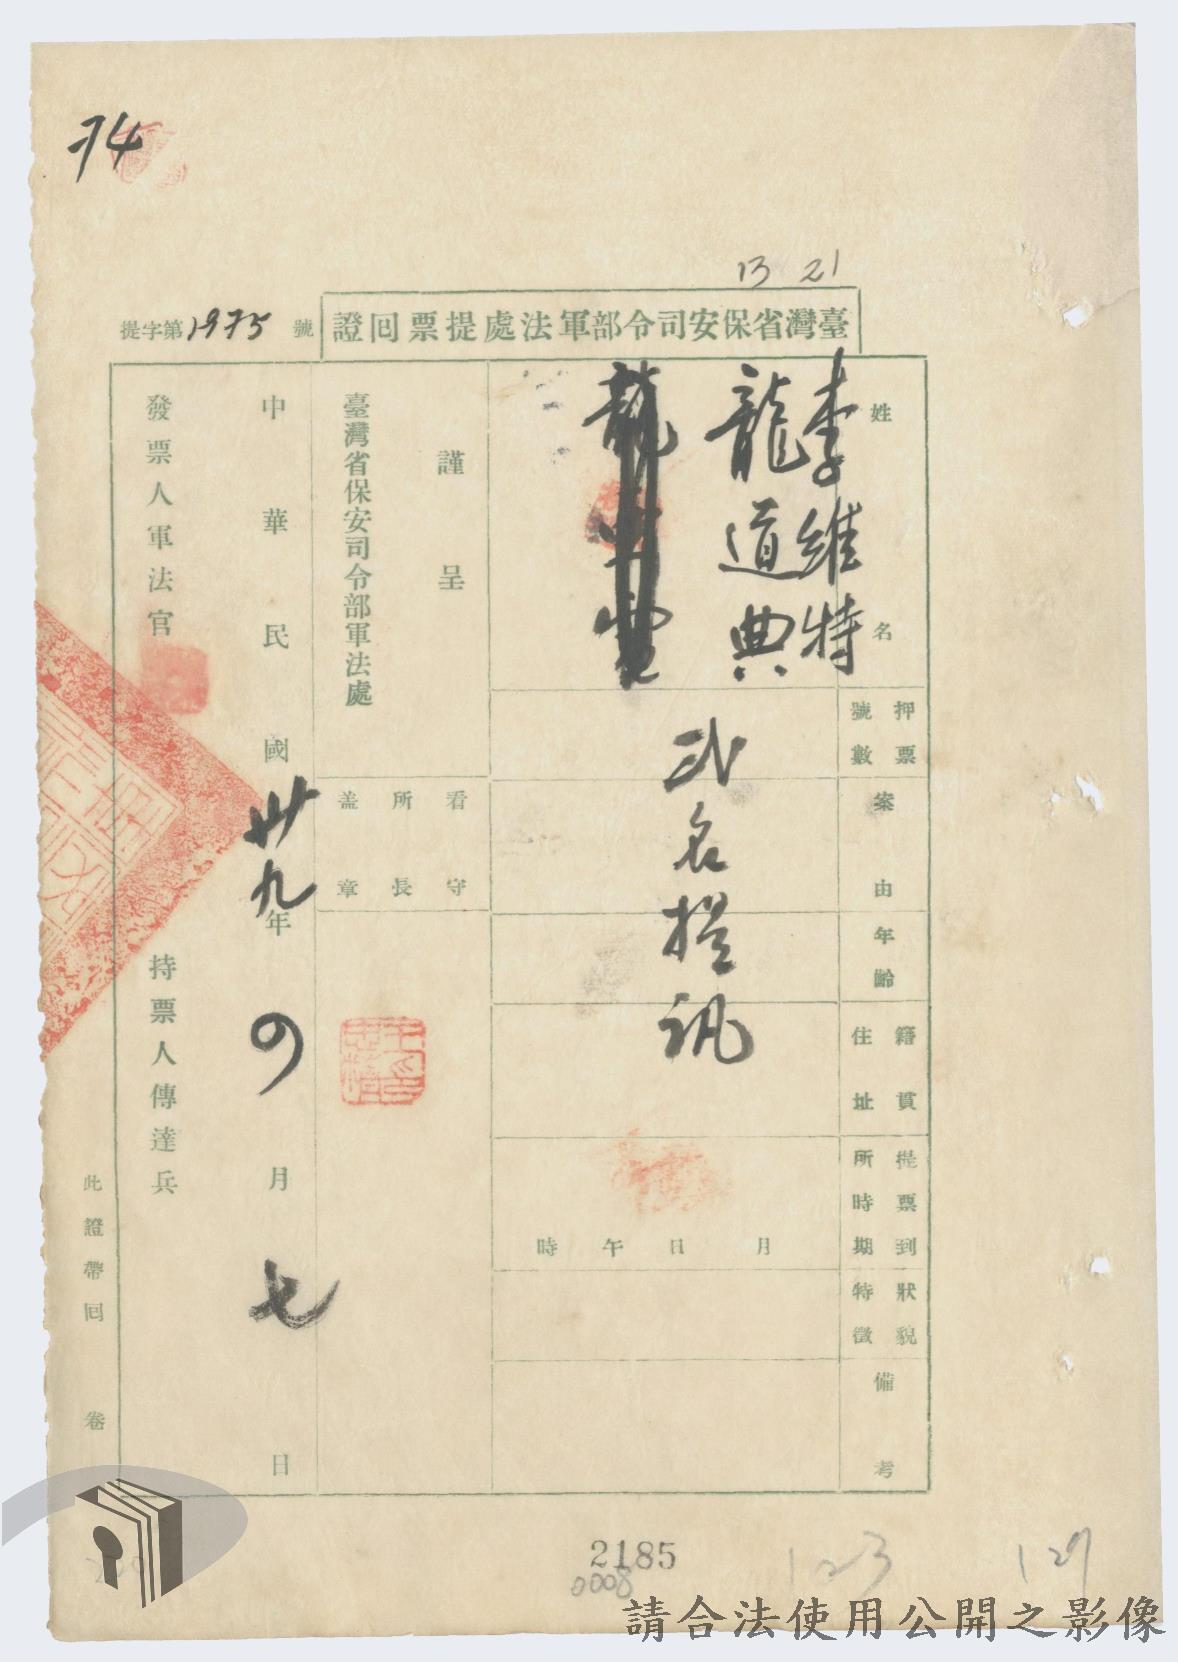 74
13 21
臺灣省保安司令部軍法處提票回證
提字第1975號
姓名
李維特
龍道典
弍名提訊
押票號數
案由
年齡
籍貫住址
提票到所時期
月 日 午 時
狀貌特徵
備考
謹呈
臺灣省保安司令部軍法處
看守所長盖章
中華民國卅九年四月七日
發票人軍法官
持票人傳達兵
此證帶回 卷
2185
0008
123
129
請合法使用公開之影像